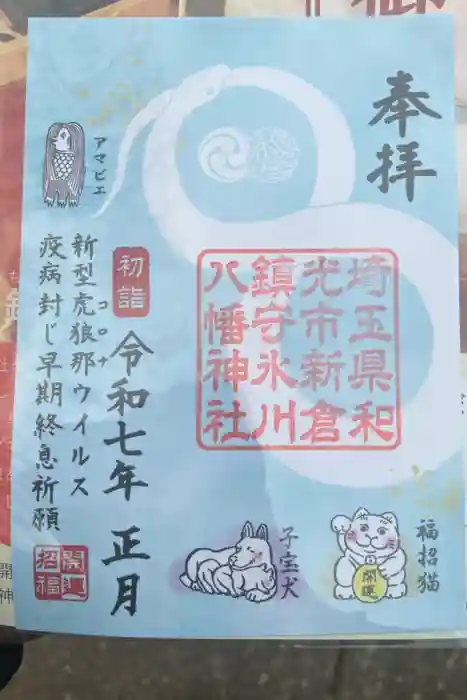 奉拝
埼玉県和
光市新倉
鎮守氷川
八幡神社
福招猫
開運
子宝犬
初詣
令和七年 正月
アマビエ
新型虎狼那ウイルス
コロナ
疫病封じ早期終息祈願
開運
招福